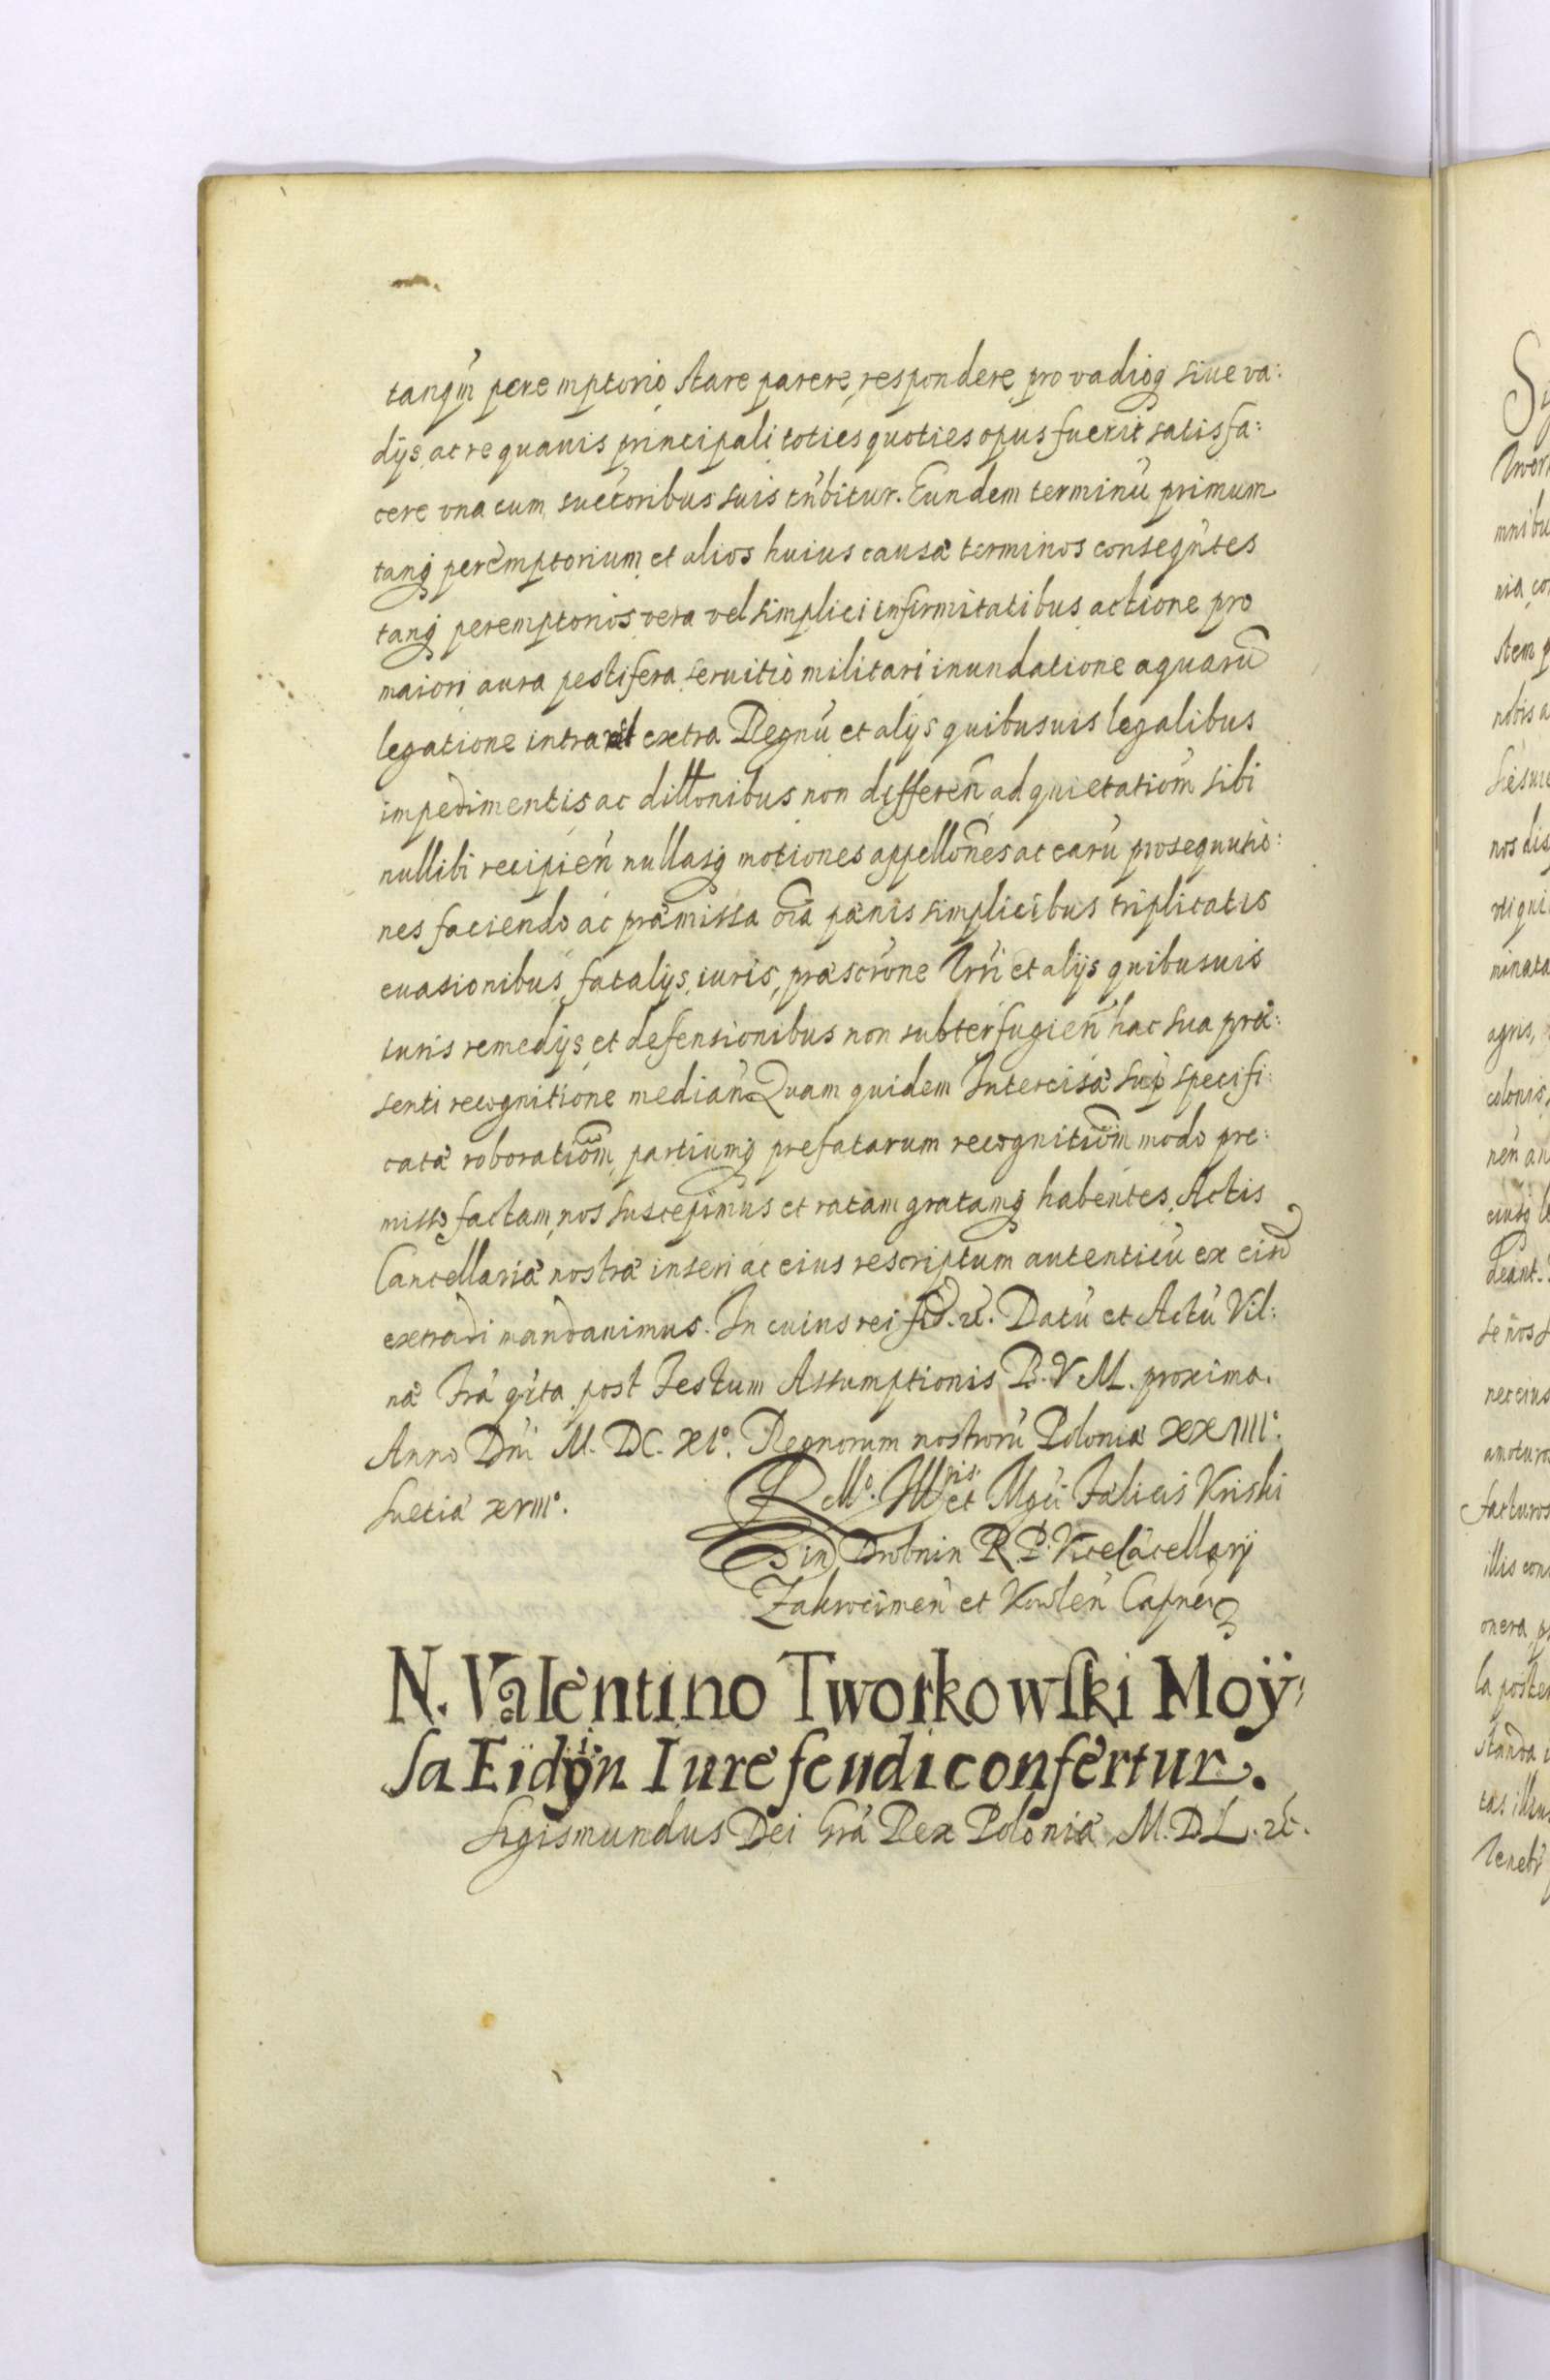 tanqm̃ peremptorio stare parere, respondere, pro vadioq siue va:
dijs, ac re quauis principali toties quoties opus fuerit satisfa:
cere vna cum succ̃oribus suis tñbitur. Eundem terminũ primum
tanq peremptorium, et alios huius causæ terminos conseqñtes
tanq peremptorios vera vel simplici infirmitatibus, actione pro
maiori aura pestifera, seruitio militari inundatione aquarũ
legatione intra vel extra Regnũ et alijs quibusuis legalibus
impedimentis ac dil̃onibus non differeñ ad quietatioñm sibi
nullibi recipieñ nullasq motiones appell̃ones ac earũ prosequutio:
nes faciendo ac præmissa oĩa pænis simplicibus triplicatis
euasionibus, fatalijs, iuris, præscr̃one Tr̃ri et alijs quibusuis
iuris remedijs, et defensionibus non subterfugieñ hac sua præ:
senti recognitione mediañ. Quam quidem Intercisæ sup̃ specifi:
catæ roboratioñm, partiumq prefatarum recognitioñm modo pre:
misso factam, nos suscepimus et ratam gratamq habentes, Actis
Cancellariæ nostræ inseri ac eius rescriptum autenticũ ex eisd̃
extradi mandauimus. In cuius rei fid. &c. Datũ et Actũ Vil:
næ fr̃a qr̃ta post Festum Assumptionis B. V. M. proxima.
Anno Dñi M. DC. XIº. Regnorum nostrorũ Poloniæ XXIIIIº.
Sueciæ XVIIIº.
R. Mº. Ill̃ris et Mgci Fælicis Kriski
in Drobnin R. P. Vicecãcellarij
Zakrocimeñ et Kowleñ Capnei
N. Valentino Tworkowski Moÿ:
sa Eidÿn Iure feudi confertur.
Sigismundus Dei Grã Rex Poloniæ M. D. L. &c.